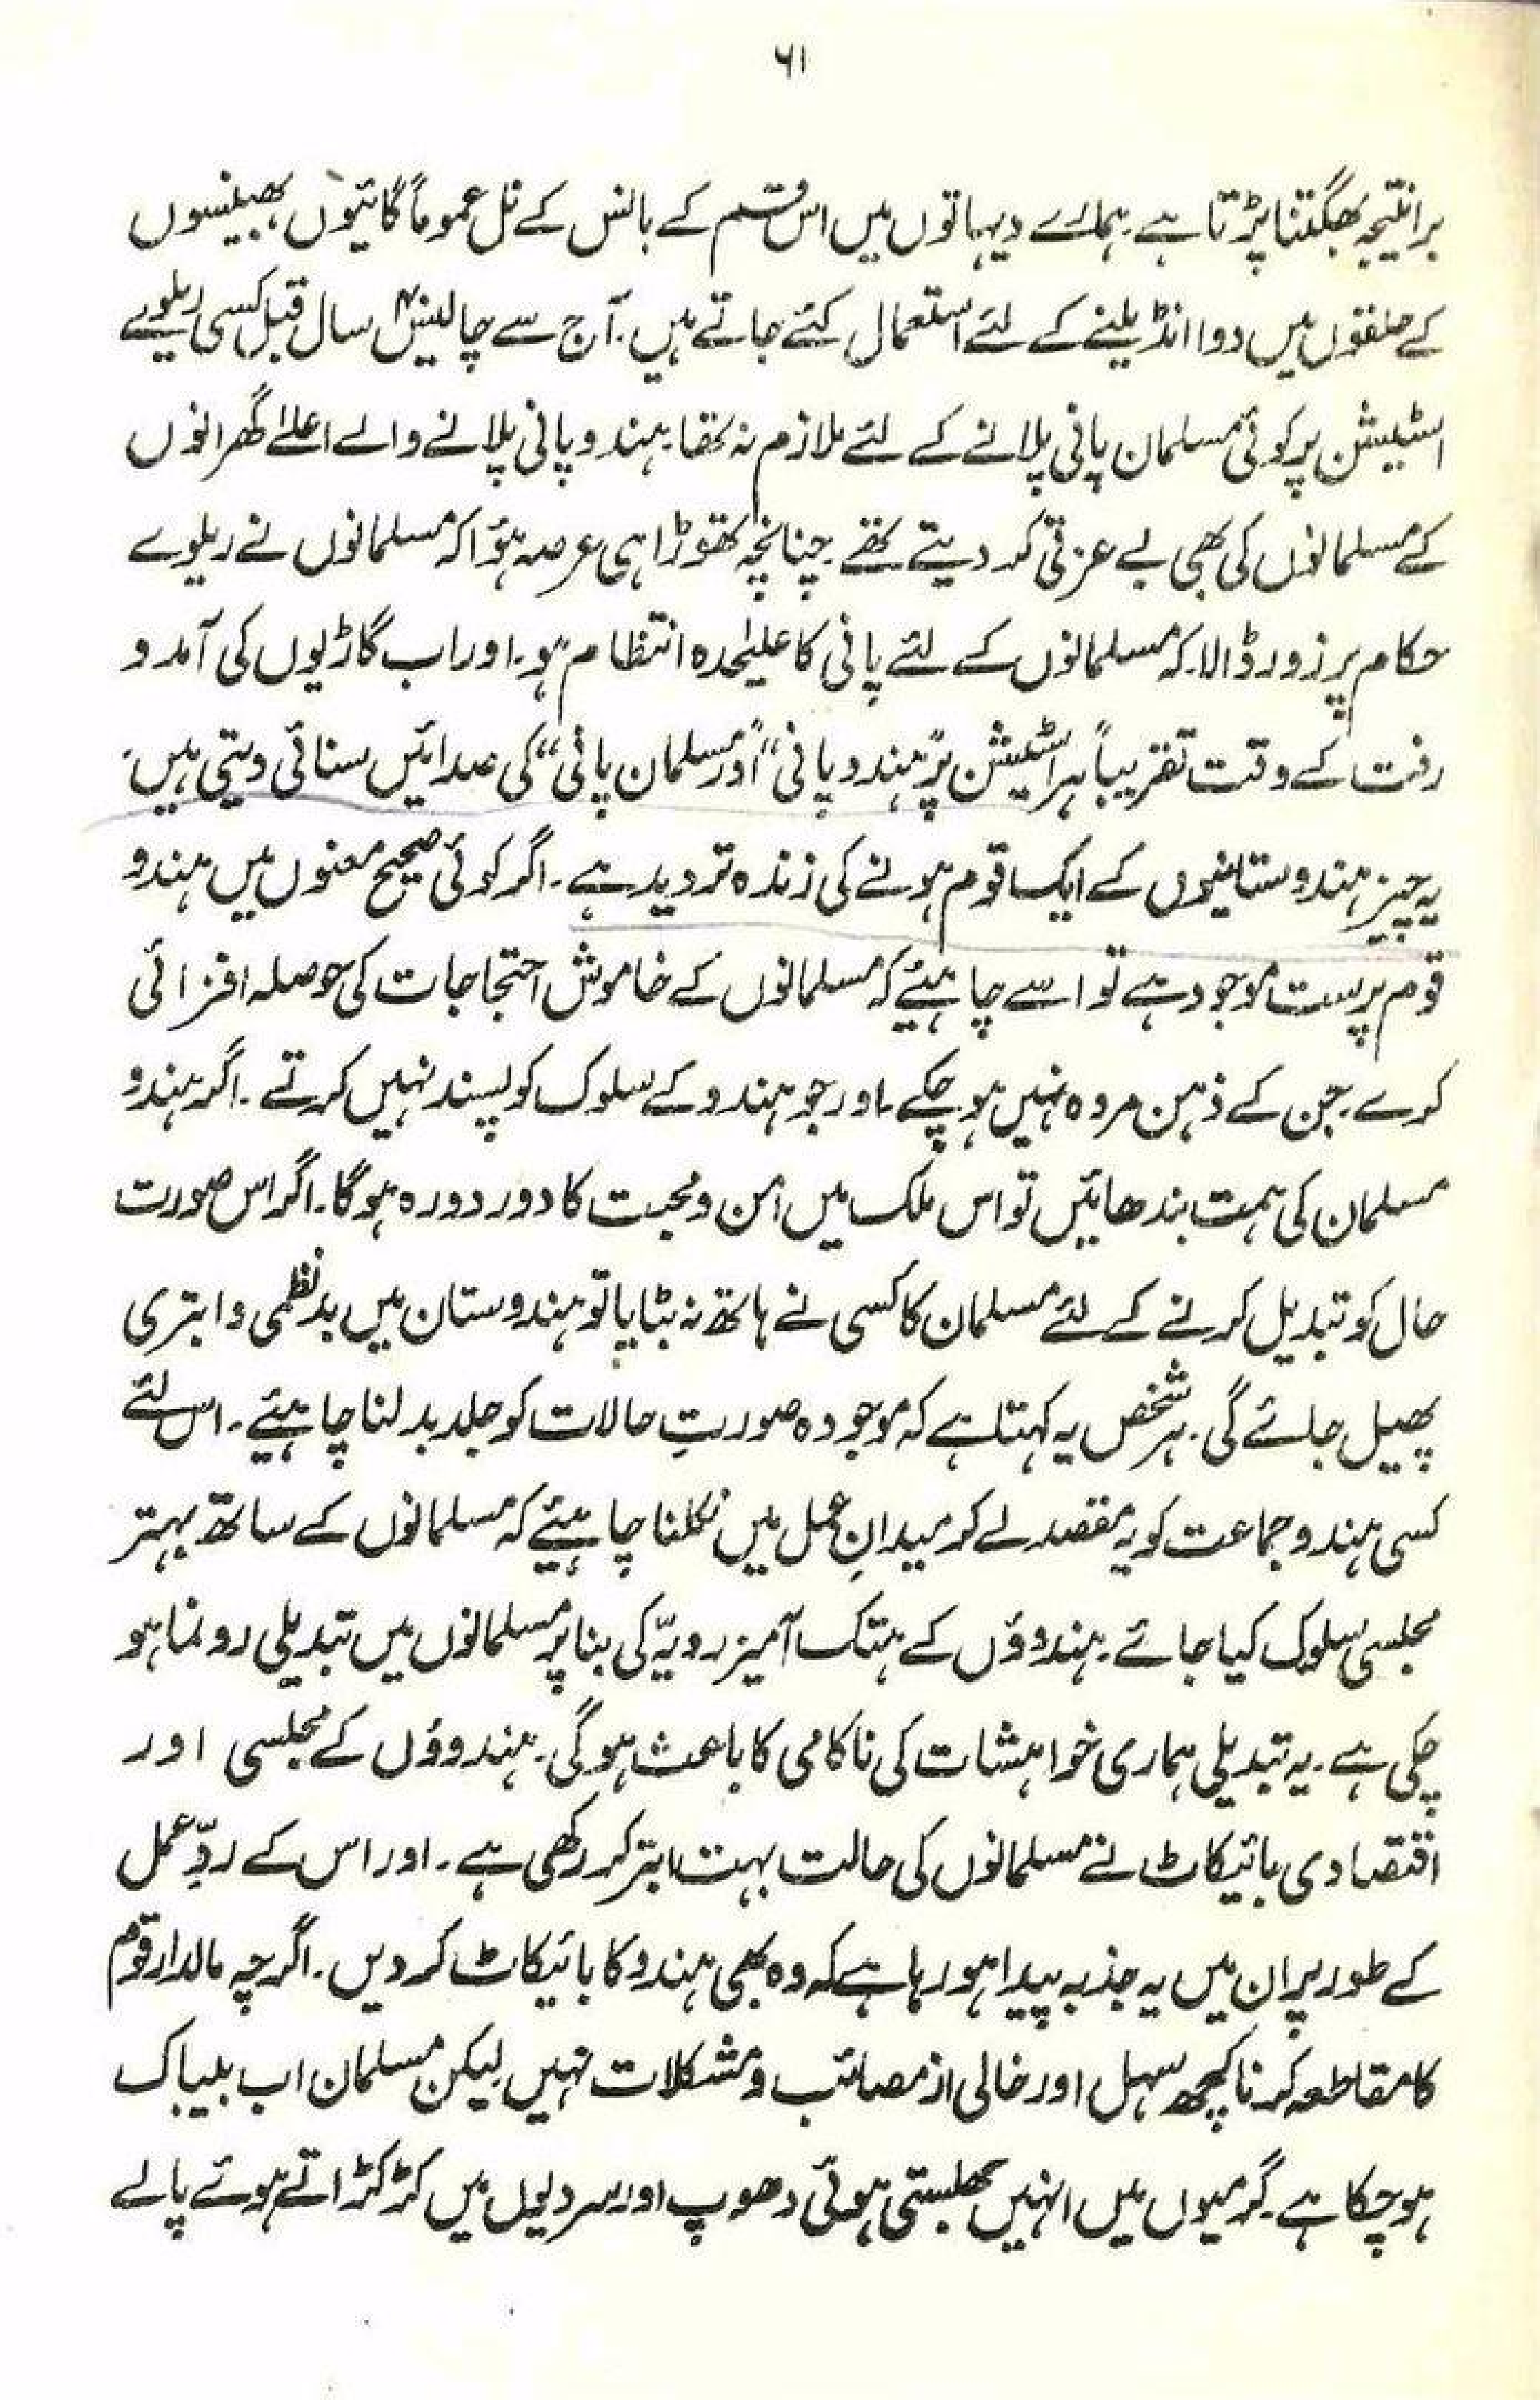 ۶۱
برا نتیجہ بھگتنا پڑتا ہے۔ ہمارے دیہاتوں میں اس قسم کے بانس کے نل عموماً گائیوں، بھینسوں
کے حلقوں میں دوا انڈیلنے کے لئے استعمال کئے جاتے ہیں۔ آج سے چالیس سال قبل کسی ریلوے
اسٹیشن پر کوئی مسلمان پانی پلانے کے لئے ملازم نہ تھا۔ ہندو پانی پلانے والے اعلےٰ گھرانوں
کے مسلمانوں کی بھی بے عزتی کر دیتے تھے۔ چنانچہ تھوڑا ہی عرصہ ہؤا کہ مسلمانوں نے ریلوے
حکام پر زور ڈالا۔ کہ مسلمانوں کے لئے پانی کا علیٰحدہ انتظام ہو۔ اور اب گاڑیوں کی آمد و
رفت کے وقت تقریباً ہر اسٹیشن پر "ہندو پانی" اور "مسلمان پانی" کی صدائیں سنائی دیتی ہیں۔
یہ چیز ہندوستانیوں کے ایک قوم ہونے کی زندہ تردید ہے۔ اگر کوئی صحیح معنوں میں ہندو
قوم پرست موجود ہے تو اسے چاہئیے کہ مسلمانوں کے خاموش احتجاجات کی حوصلہ افزائی
کرے۔ جن کے ذہن مردہ نہیں ہو چکے۔ اور جو ہندو کے سلوک کو پسند نہیں کرتے۔ اگر ہندو
مسلمان کی ہمت بندھائیں تو اس ملک میں امن و محبت کا دور دورہ ہوگا۔ اگر اس صورت
حال کو تبدیل کرنے کے لئے مسلمان کا کسی نے ہاتھ نہ بٹایا تو ہندوستان میں بدنظمی و ابتری
پھیل جائے گی۔ ہر شخص یہ کہتا ہے کہ موجودہ صورتِ حالات کو جلد بدلنا چاہئیے۔ اس لئے
کسی ہندو جماعت کو یہ مقصد لے کر میدانِ عمل میں نکلنا چاہئیے کہ مسلمانوں کے ساتھ بہتر
مجلسی سلوک کیا جائے۔ ہندوؤں کے ہتک آمیز رویّہ کی بنا پر مسلمانوں میں تبدیلی رونما ہو
چکی ہے۔ یہ تبدیلی ہماری خواہشات کی ناکامی کا باعث ہوگی۔ ہندوؤں کے مجلسی اور
اقتصادی بائیکاٹ نے مسلمانوں کی حالت بہت ابتر کر رکھی ہے۔ اور اس کے ردِّ عمل
کے طور پر ان میں یہ جذبہ پیدا ہو رہا ہے کہ وہ بھی ہندو کا بائیکاٹ کر دیں۔ اگرچہ مالدار قوم
کا مقاطعہ کرنا کچھ سہل اور خالی از مصائب و مشکلات نہیں لیکن مسلمان اب بیباک
ہو چکا ہے۔ گرمیوں میں انہیں جھلستی ہوئی دھوپ اور سردیوں میں کڑکڑاتے ہوئے پالے